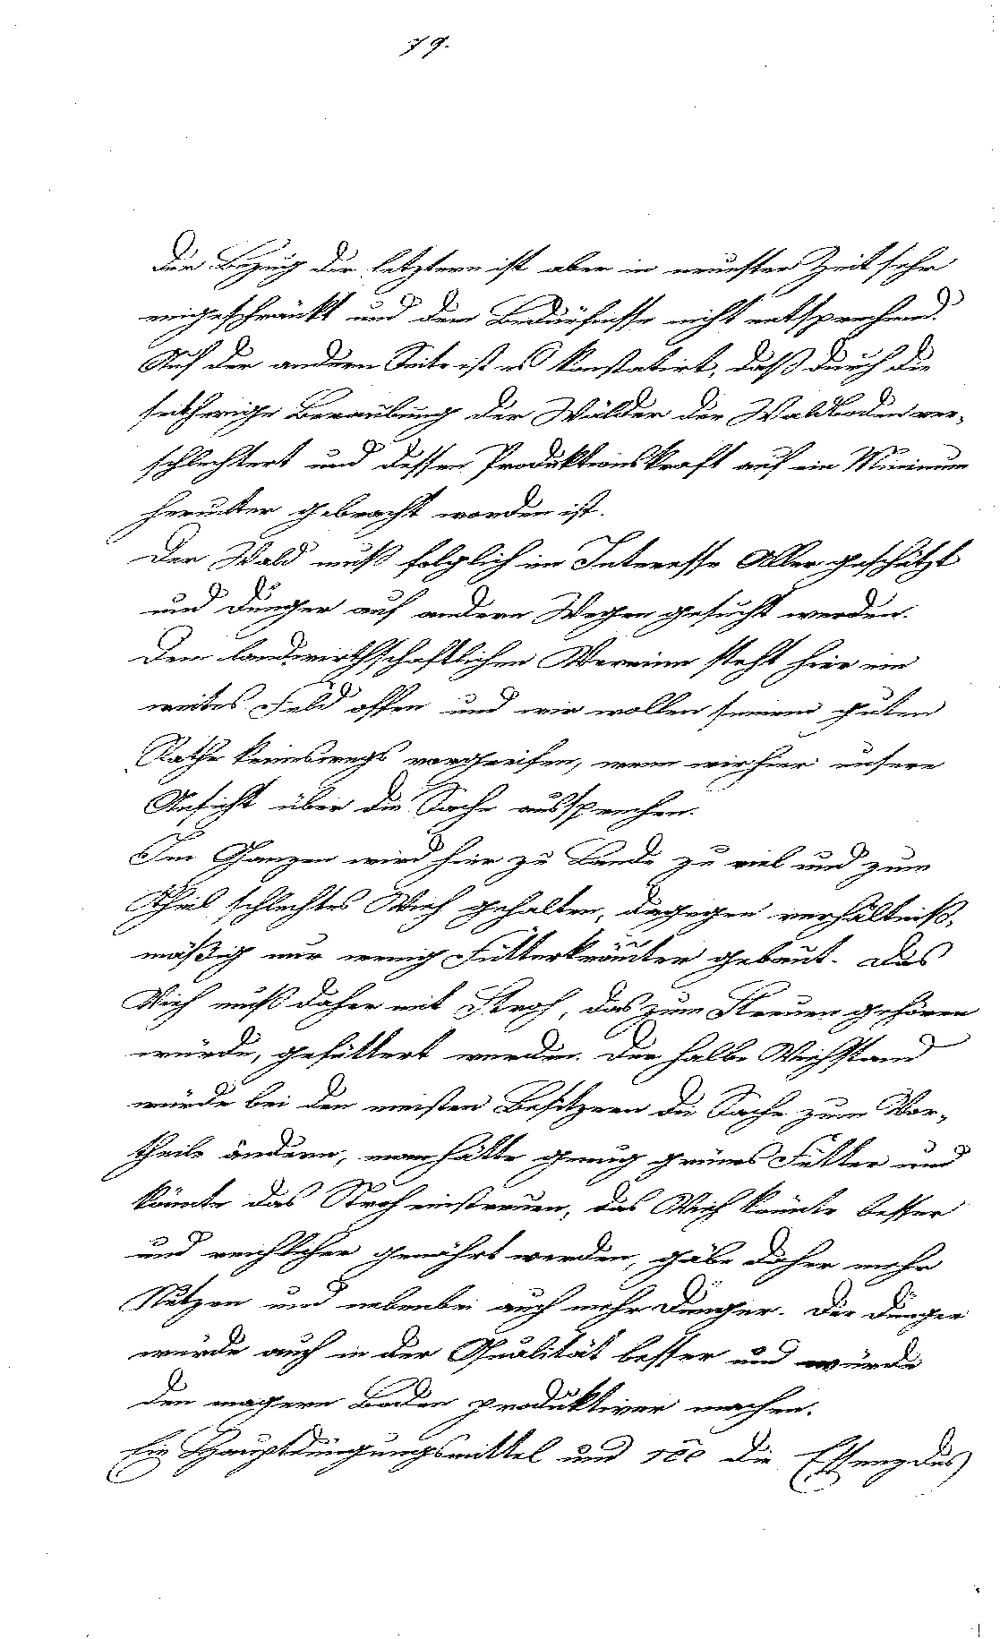 79.
Der Bezug der letztern ist aber in neuester Zeit sehr
eingeschränkt und dem Bedürfnisse nicht entsprechend.
Auf der andern Seite ist es konstatirt, daß durch die
seitherige Beraubung der Wälder der Waldboden ver-
schlechtert und dessen Produktionskraft auf ein Minimum
herunter gebracht worden ist.
Der Wald muß folglich im Interesse Aller geschützt
und Dünger auf andern Wegen gesucht werden.
Dem landwirthschaftlichen Vereine steht hier ein
weites Feld offen und wir wollen seinem guten
Rathe keineswegs vorgreifen, wenn wir hier unsere
Ansicht über die Sache aussprechen.
Im Ganzen wird hier zu Lande zu viel und zum
Theil schlechtes Vieh gehalten, dagegen verhältniß-
mäßig nur wenig Futterkräuter gebaut. Das
Vieh muß daher mit Stroh, das zum Streuen gehören
würde, gefüttert werden. Der halbe Viehstand
würde bei den meisten Besitzern die Sache zum Vor-
theile ändern, man hätte genug grünes Futter und
könnte das Stroh einstreuen, das Vieh könnte besser
und reichlicher genährt werden, gäbe daher mehr
Nutzen und nebenbei auch mehr Dünger. Der Dünger
würde auch in der Qualität besser und würde
den magern Boden produktiver machen.
Ein Hauptdüngungsmittel und die Essenz des